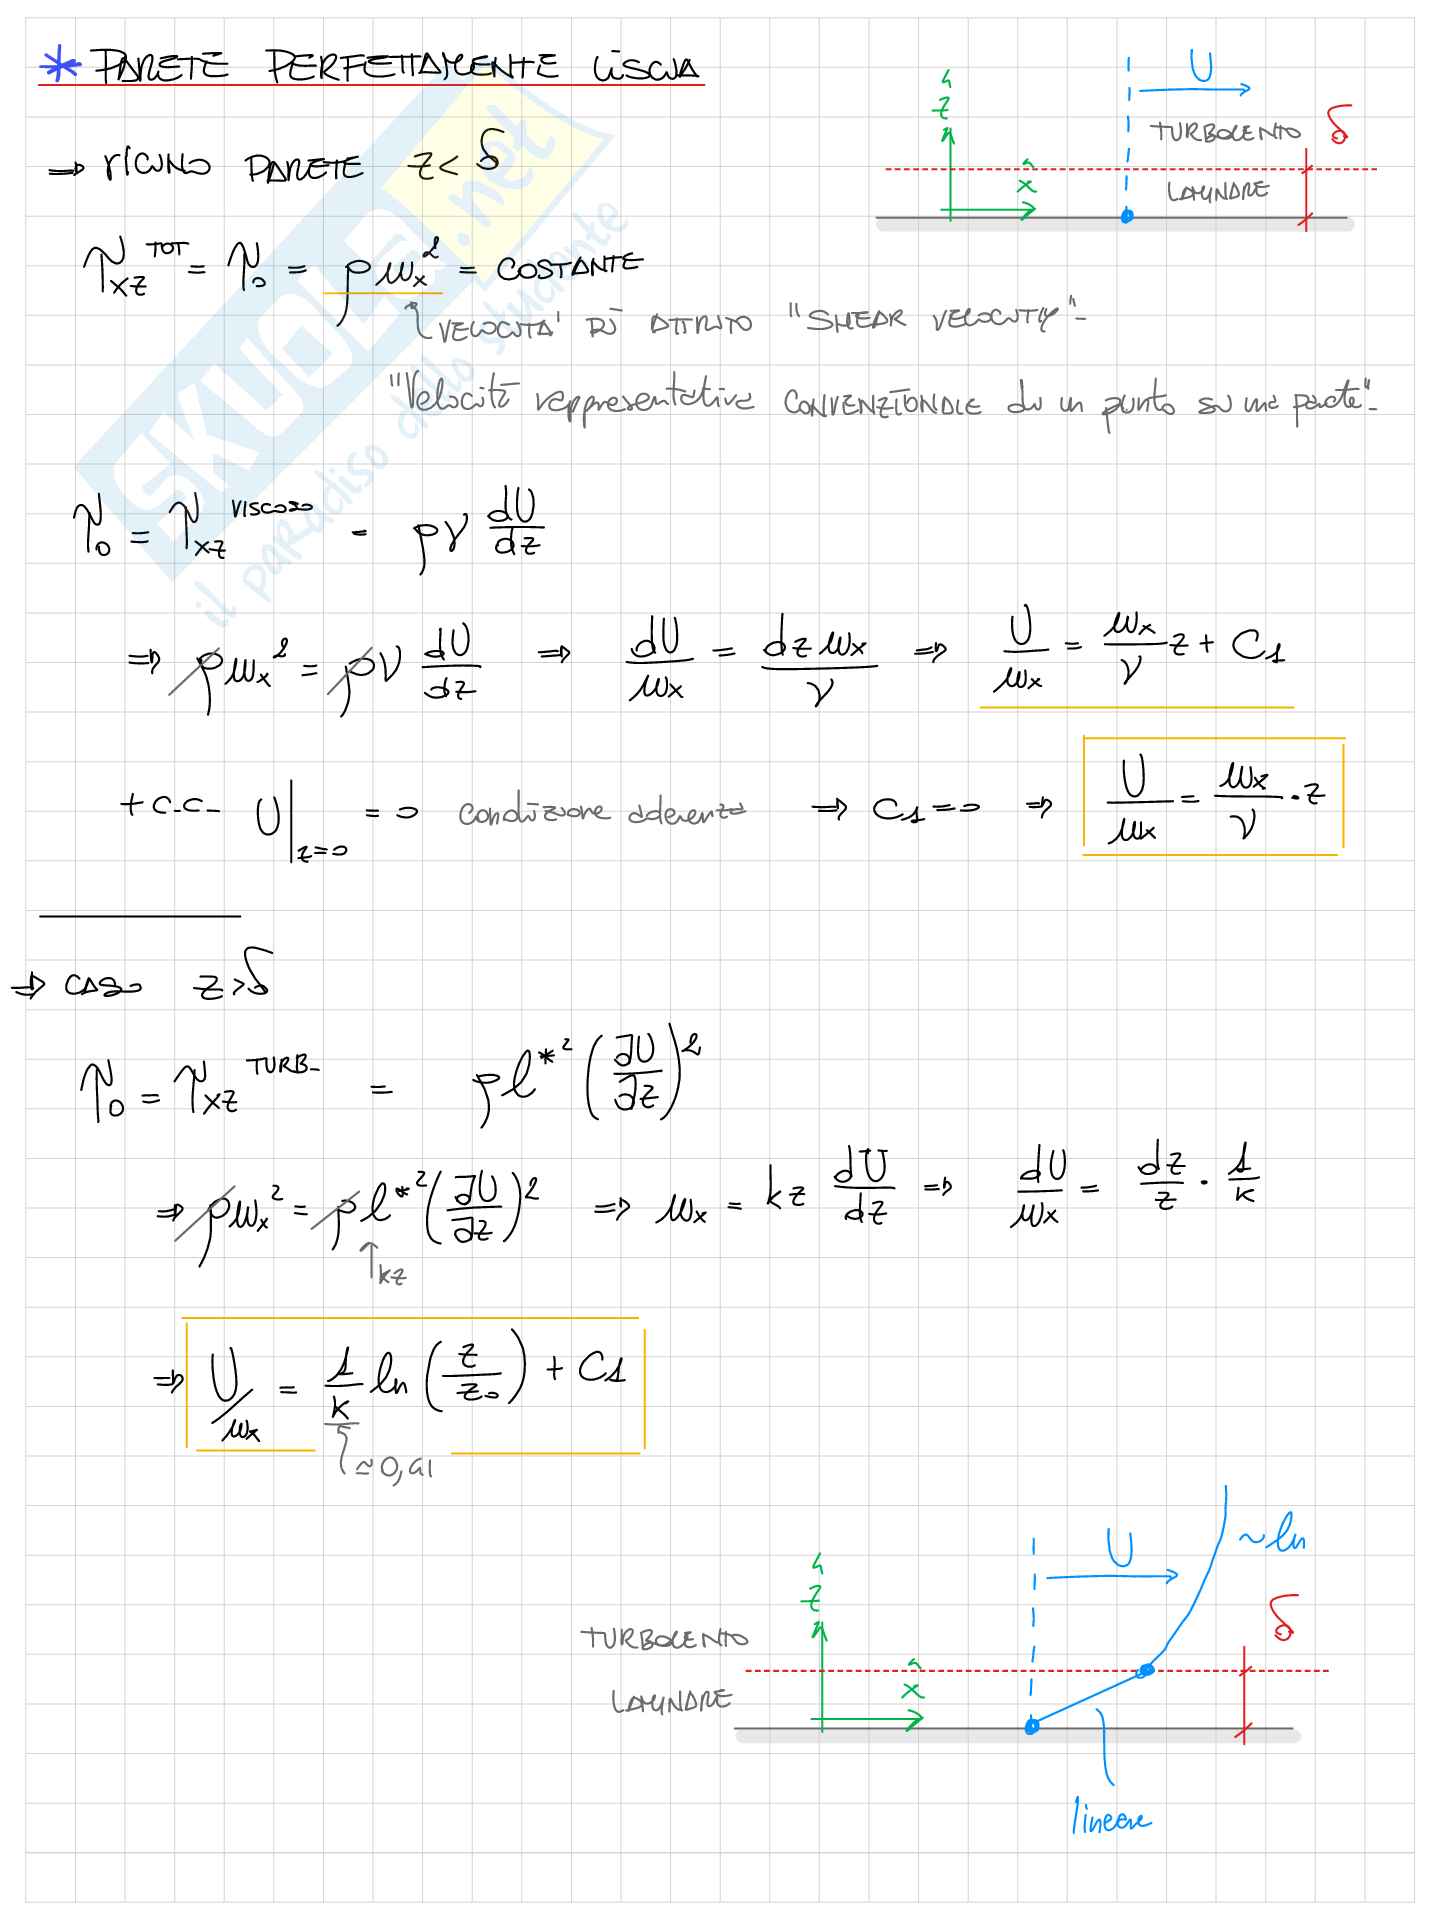 * PARETE PERFETTAMENTE LISCIA
U
ẑ
TURBOLENTO
δ
x̂
LAMINARE
⇒ VICINO PARETE z < δ
τxz^TOT = τ0 = ρ ux² = COSTANTE
VELOCITA' DI ATTRITO "SHEAR VELOCITY".
"Velocità rappresentativa CONVENZIONALE di un punto su una parete".
τ0 = τxz^VISCOSO = ρν dU/dz
⇒ ρux² = ρν dU/dz ⇒ dU/ux = dz ux/ν ⇒ U/ux = ux/ν z + C1
+ C.C. U|z=0 = 0 condizione aderenza ⇒ C1 = 0 ⇒ U/ux = ux/ν · z
⇒ CASO z > δ
τ0 = τxz^TURB. = ρl*² (∂U/∂z)²
⇒ ρux² = ρl*² (∂U/∂z)² ⇒ ux = kz dU/dz ⇒ dU/ux = dz/z · 1/k
kz
⇒ U/ux = 1/k ln (z/z0) + C1
≃ 0,41
U
~ ln
ẑ
δ
TURBOLENTO
x̂
LAMINARE
lineare
SKUOLA.net
il paradiso dello studente